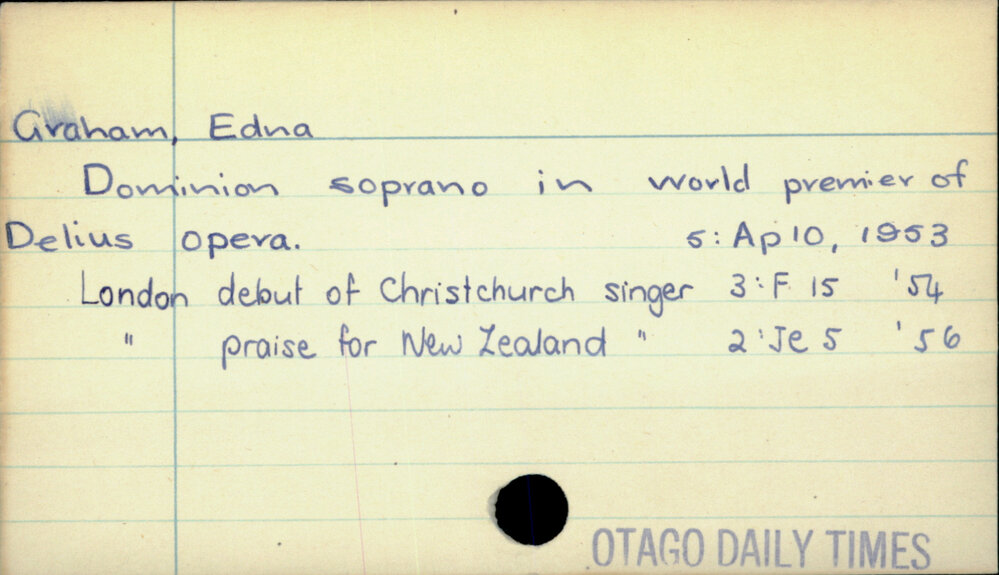 Graham, Edna
Dominion soprano in world premier of
Delius opera. 5: Ap 10, 1953
London debut of Christchurch singer 3: F 15 '54
" praise for New Zealand " 2: Je 5 '56
OTAGO DAILY TIMES